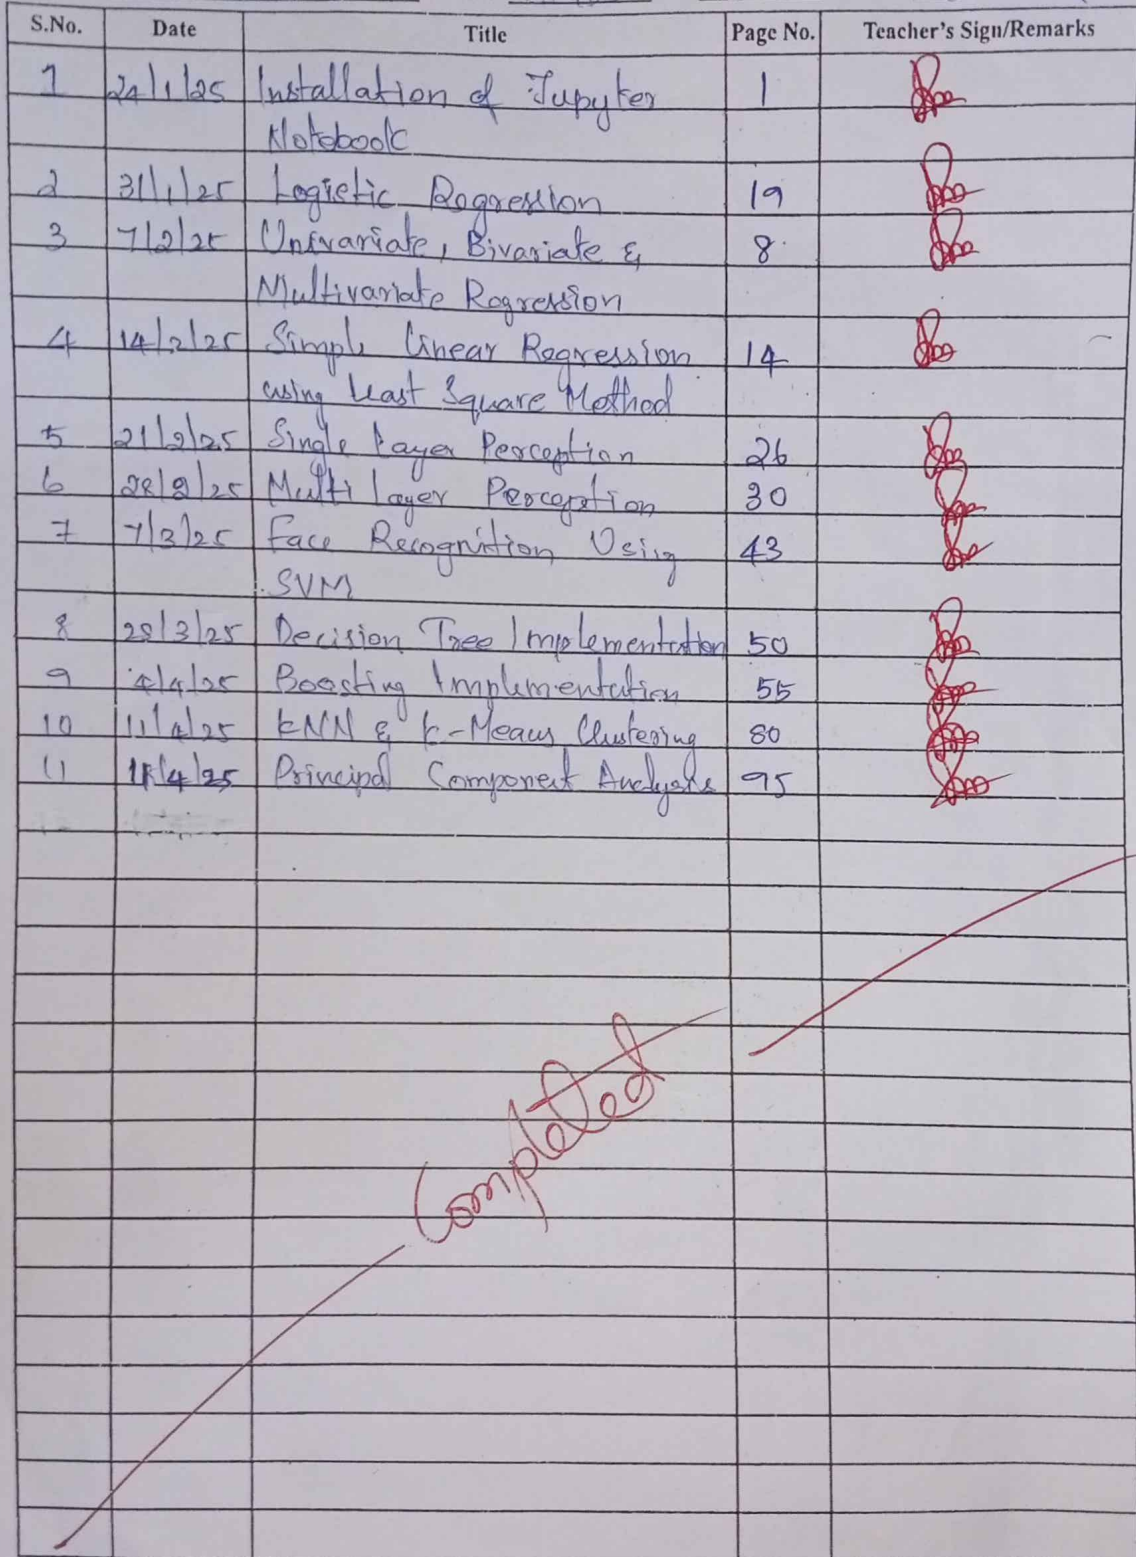 S.No. Date Title Page No. Teacher's Sign/Remarks
1 24/1/25 Installation of Jupyter 1
Notebook
2 31/1/25 Logistic Regression 19
3 7/2/25 Univariate, Bivariate & 8
Multivariate Regression
4 14/2/25 Simple Linear Regression 14
using Least Square Method
5 21/2/25 Single Layer Perception 26
6 28/2/25 Multi Layer Perception 30
7 7/3/25 Face Recognition Using 43
SVM
8 28/3/25 Decision Tree Implementation 50
9 4/4/25 Boosting Implementation 55
10 11/4/25 kNN & k-Means Clustering 80
11 Principal Component Analysis 95
Completed